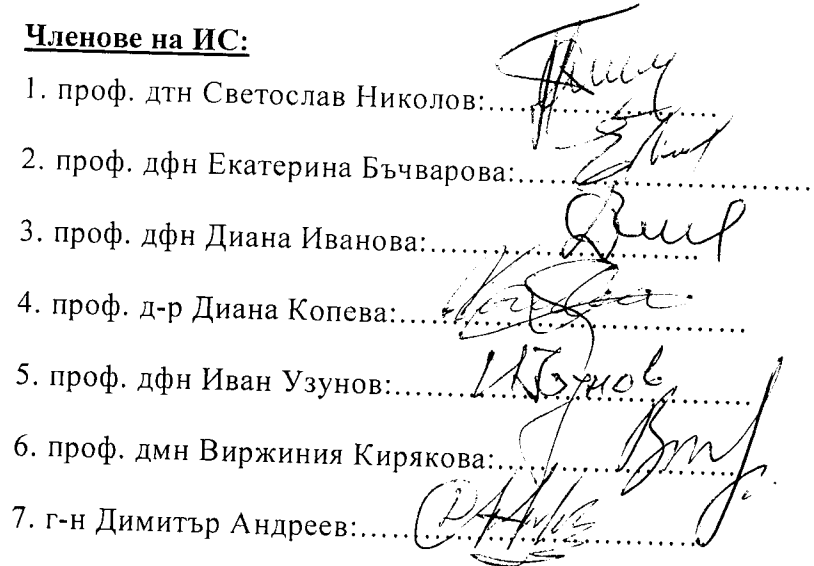 Членове на ИС:
1. проф. дтн Светослав Николов:....................
2. проф. дфн Екатерина Бъчварова:..........................
3. проф. дфн Диана Иванова:........................
4. проф. д-р Диана Копева:..............................
5. проф. дфн Иван Узунов:...............................
6. проф. дмн Виржиния Кирякова:.....................
7. г-н Димитър Андреев:..............................